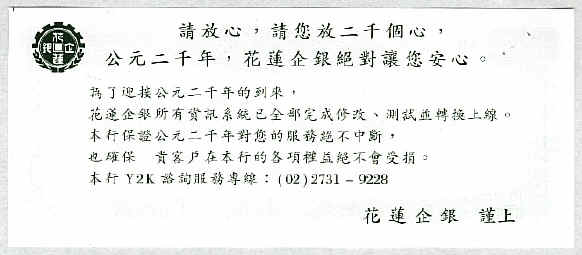 請放心，請您放二千個心，
公元二千年，花蓮企銀絕對讓您安心。
為了迎接公元二千年的到來，
花蓮企銀所有資訊系統已全部完成修改、測試並轉換上線。
本行保證公元二千年對您的服務絕不中斷，
也確保　貴客戶在本行的各項權益絕不會受損。
本行 Y2K 諮詢服務專線：(02)2731－9228
花蓮企銀　謹上